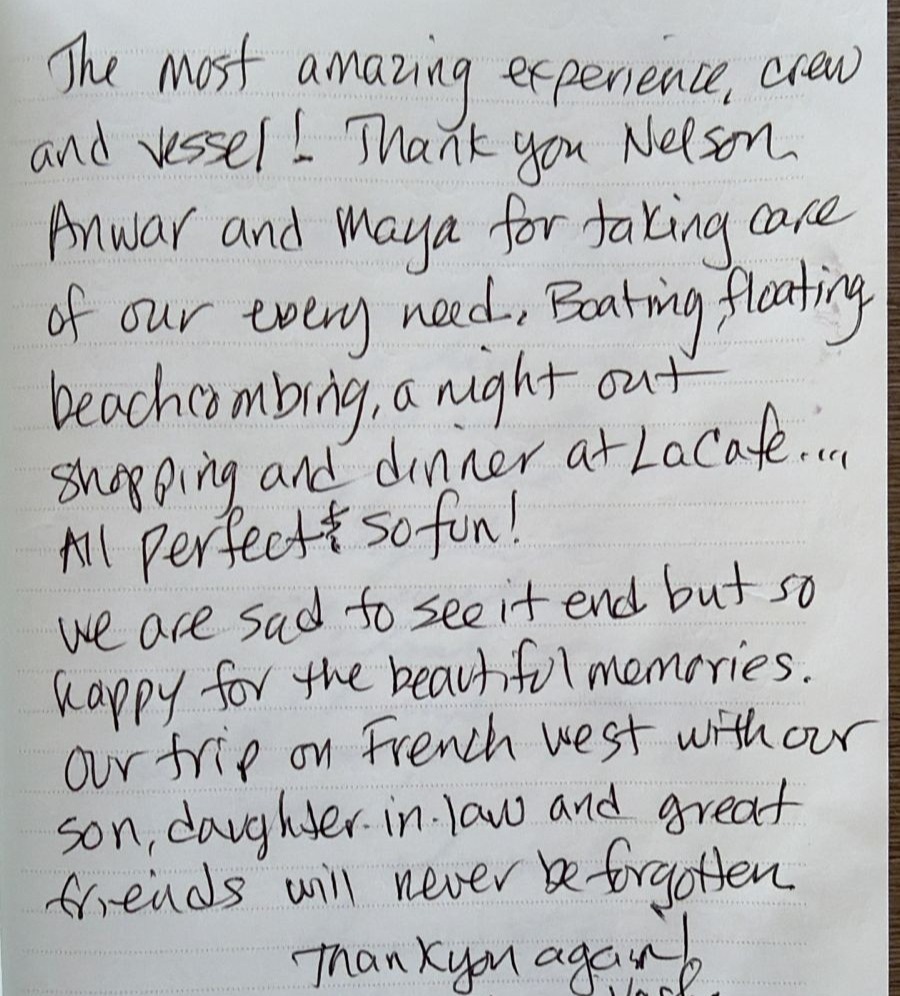 The most amazing experience, crew
and vessel! Thank you Nelson
Anwar and Maya for taking care
of our every need. Boating, floating
beachcombing, a night out
shopping and dinner at La Cafe....
All perfect & so fun!
we are sad to see it end but so
happy for the beautiful memories.
Our trip on French West with our
son, daughter-in-law and great
friends will never be forgotten.
Thank you again!